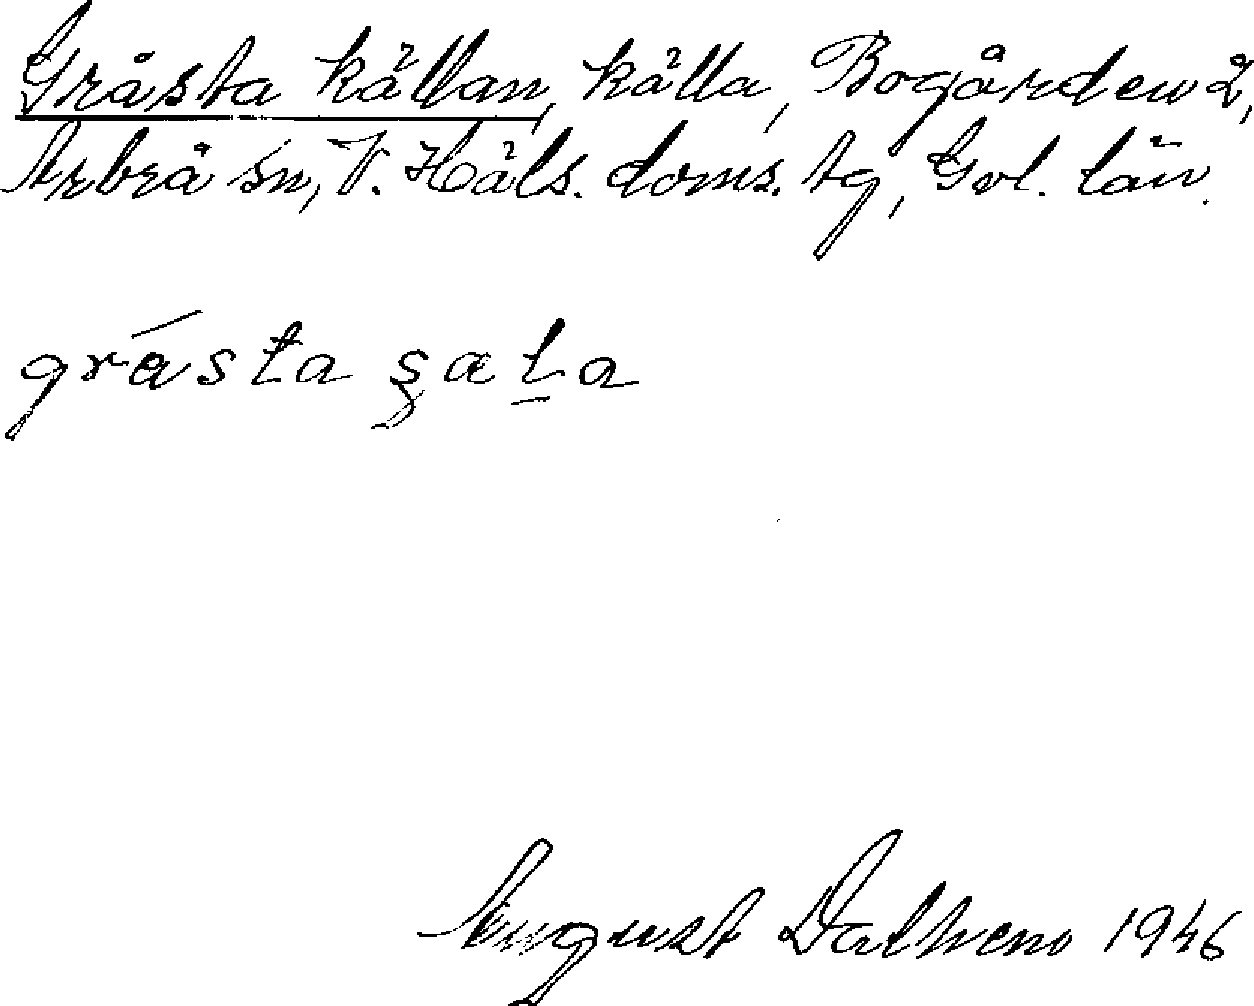 Gråsta källan, källa, Bogården å,
Arbrå sn, V. Häls. doms. tg, Gvl. län.
gråsta şaḻa
August Dalheno 1946